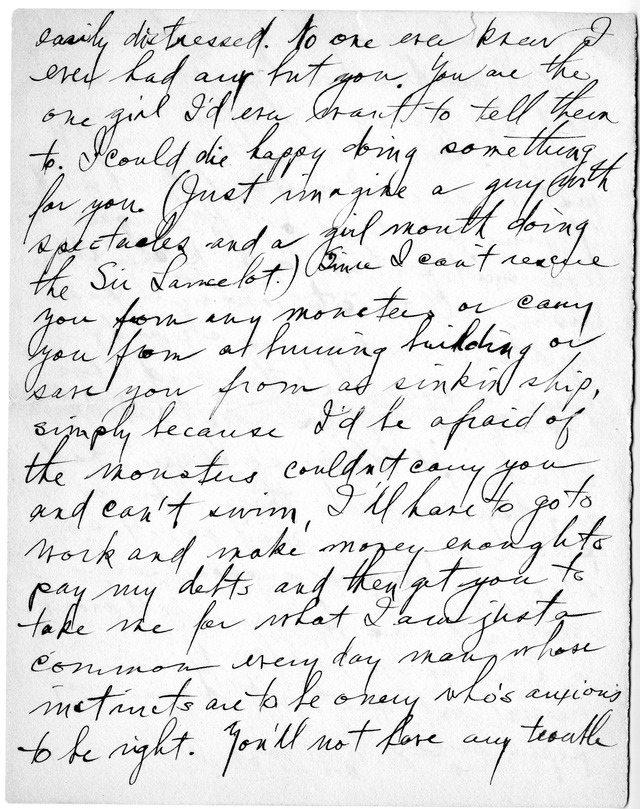 easily distressed. No one ever knew I
ever had any but you. You are the
one girl I'd ever want to tell them
to. I could die happy doing something
for you. (Just imagine a guy with
spectacles and a girl mouth doing
the Sir Lancelot.) Since I can't rescue
you from any monsters or carry
you from a burning building or
save you from a sinkin ship,
simply because I'd be afraid of
the monsters couldn't carry you
and can't swim, I'll have to go to
work and make money enough to
pay my debts and then get you to
take me for what I am just a
common every day man whose
instincts are to be ornery who's anxious
to be right. You'll not have any trouble